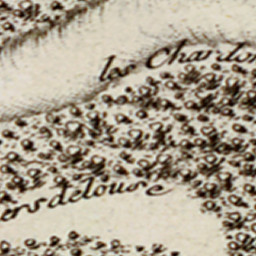 les Chardon
ers de louise